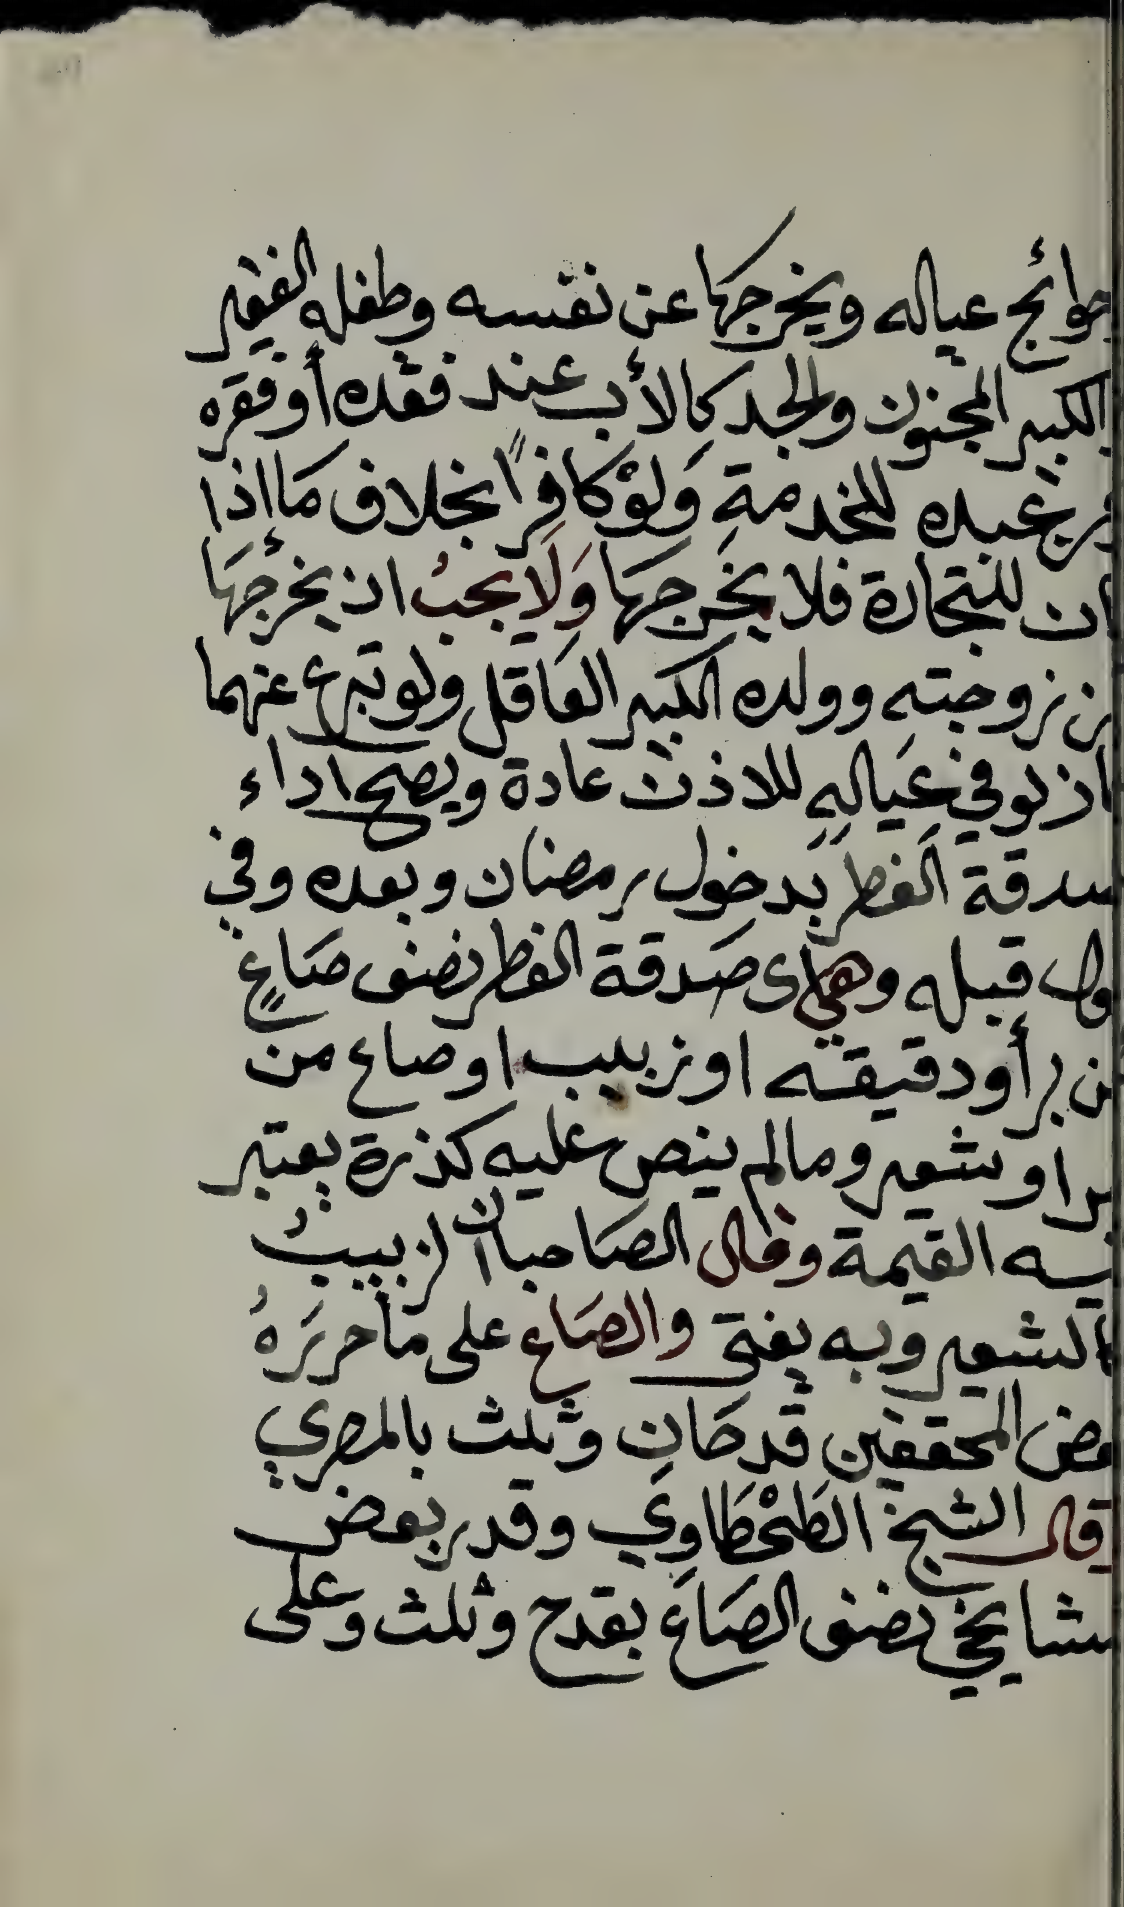 حوائج عياله ويخرجها عن نفسه وطفله الفقير
الكبير المجنون والجد كالأب عند فقده أو فقره
عبده للخدمة وَلوْ كافرًا بخلاف مَا إذا
ان للتجارة فلا يخَرجهَا وَلَا يجبُ ان يخرجهَا
زوجته وولده الكبير العَاقل ولو تبرع عنهما
اذ لو في عَيالهِ للاذن عادة ويصح اداء
صدقة الفطر بَدخول رمضان وبعده وفي
قبله وهي اى صَدقة الفطر نصف صَاعٍ
من بر أو دقيقه او زبيب او صاع من
او شعير ومالم ينص عليه كذرة يعتبر
فيه القيمة وقال الصَاحبان الزبيبُ
كالشعير وبه يفتى والصَاع على مَا حررَهُ
بعض المحققين قدحَان وثلث بالمصري
قال الشيخ الطَحْطَاوي وقدر بعض
مشايخي نصف الصَاع بقدح وثلث وعلى